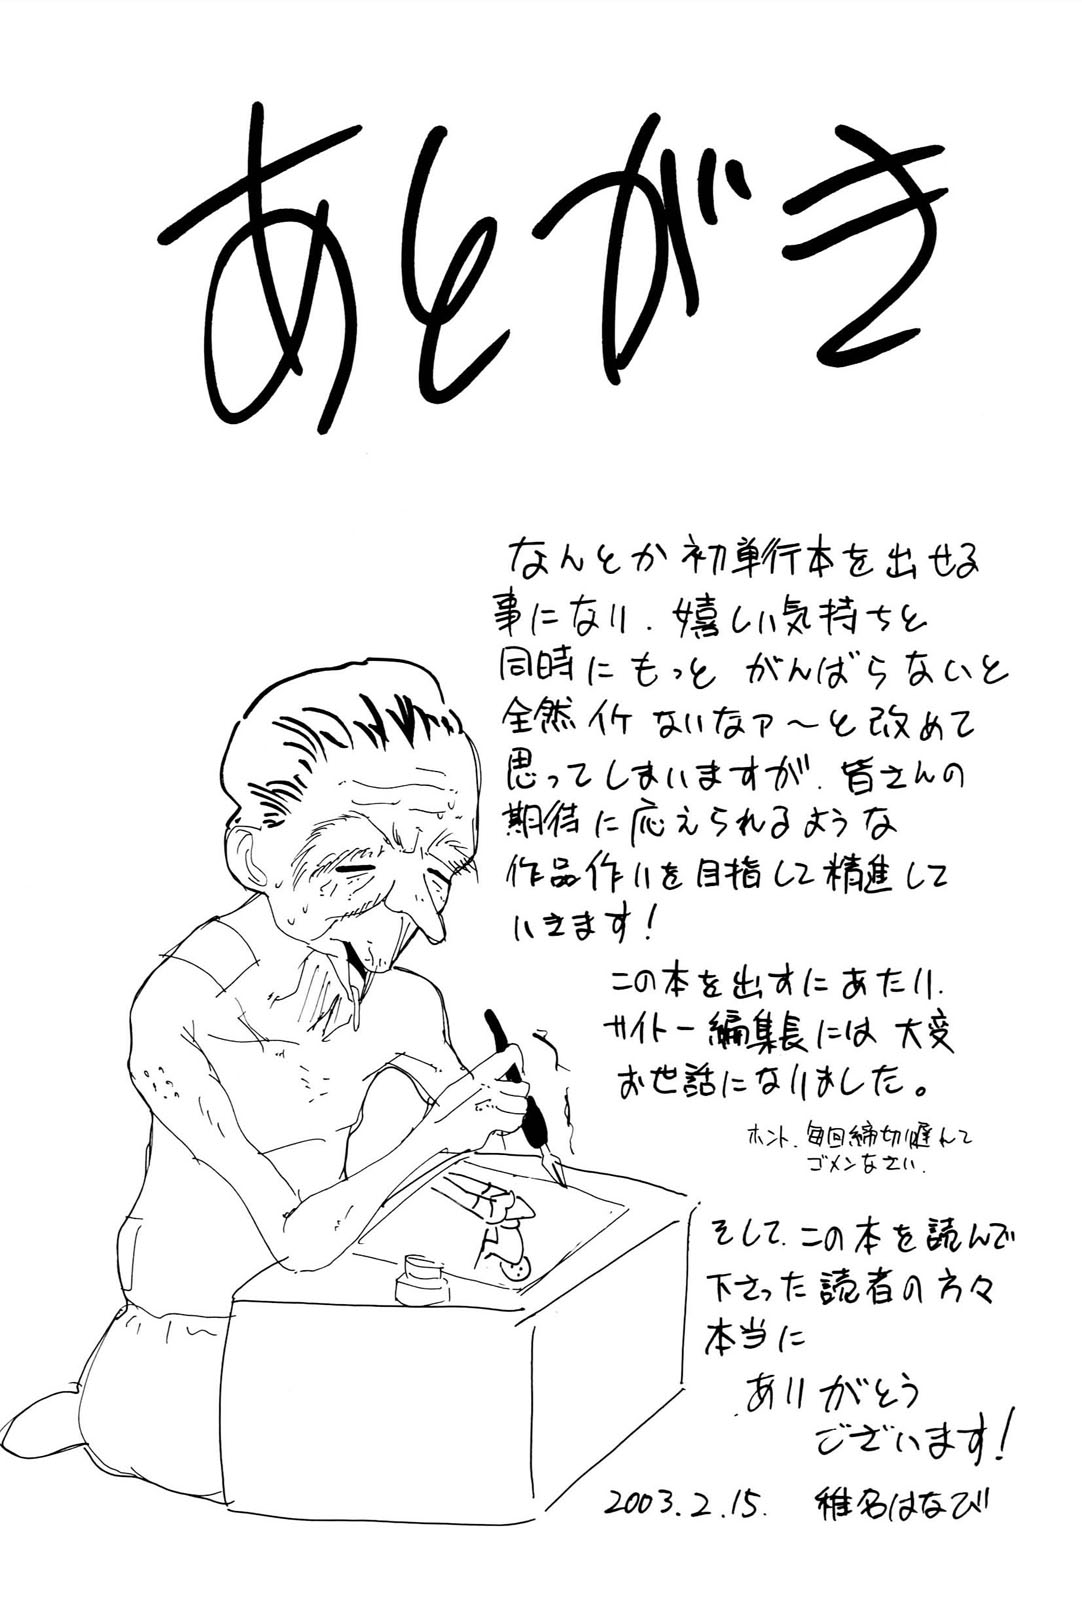 あとがき
なんとか初単行本を出せる
事になり、嬉しい気持ちと
同時にもっと がんばらないと
全然イケないなァ～と改めて
思ってしまいますが、皆さんの
期待に応えられるような
作品作りを目指して精進して
いきます!
この本を出すにあたり、
サイトー編集長には大変
お世話になりました。
ホント、毎回締切遅れて
ゴメンなさい、
そして、この本を読んで
下さった読者の方々
本当に
ありがとう
ございます!
2003.2.15. 椎名はなび